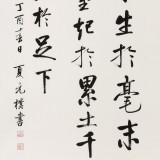 生於毫末
起於累土千
於足下
丁酉春日夏元樸書